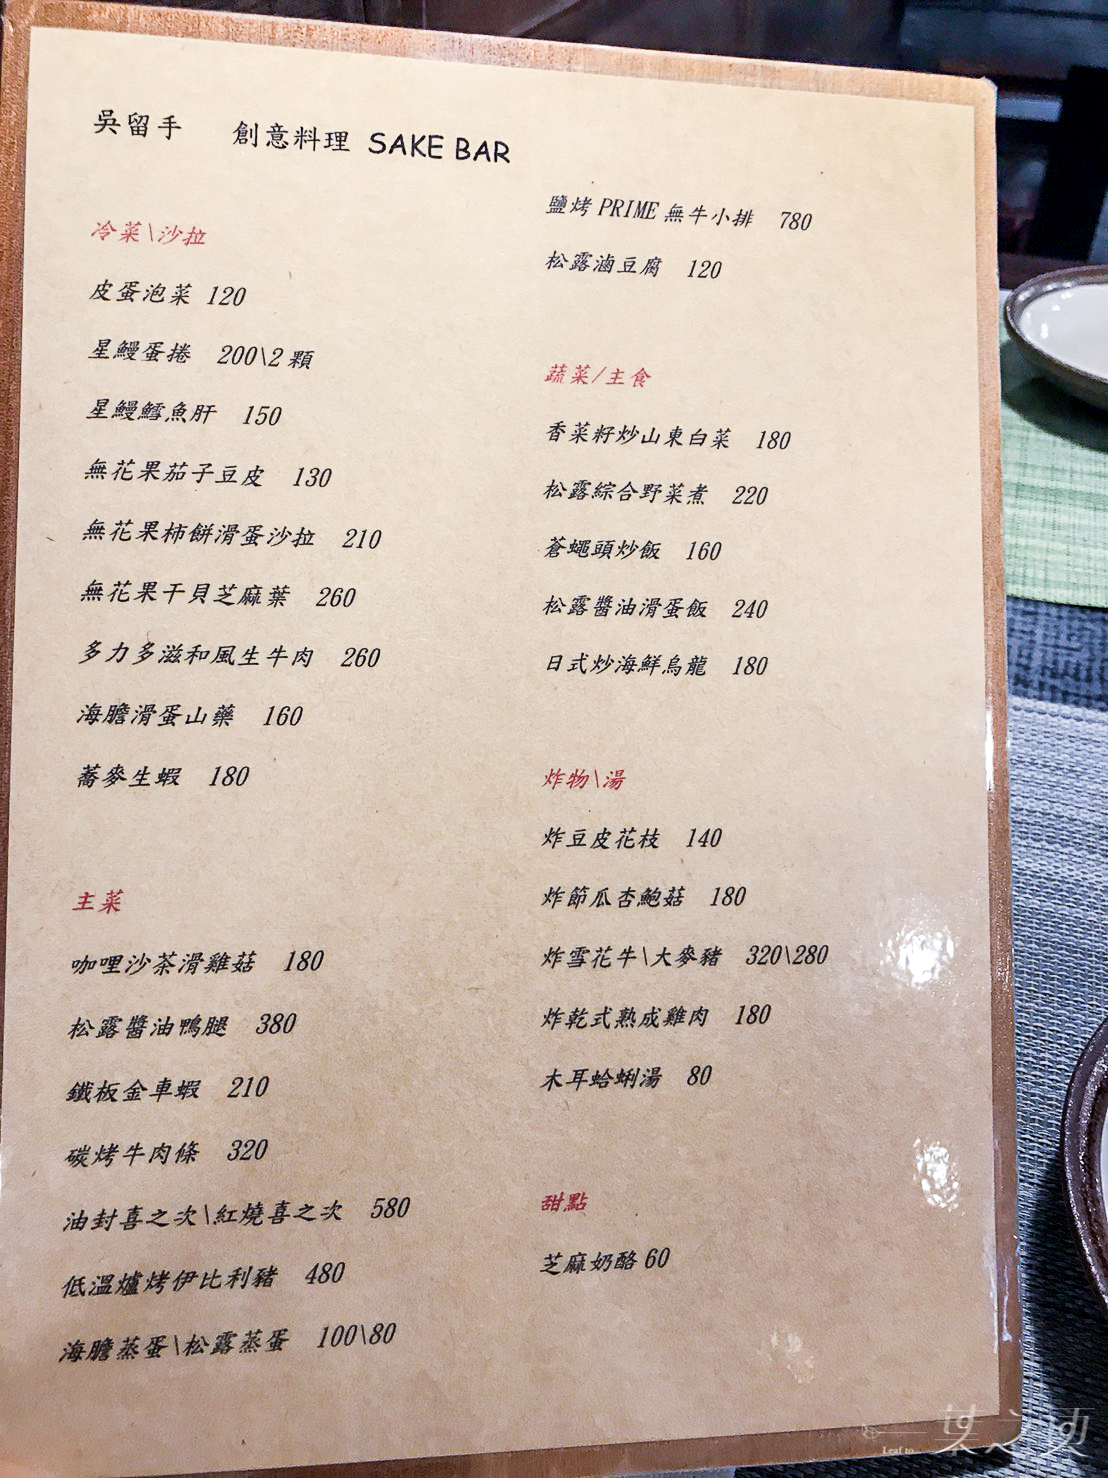 吳留手 創意料理 SAKE BAR
冷菜\沙拉
皮蛋泡菜 120
星鰻蛋捲 200\2顆
星鰻鱈魚肝 150
無花果茄子豆皮 130
無花果柿餅滑蛋沙拉 210
無花果干貝芝麻葉 260
多力多滋和風生牛肉 260
海膽滑蛋山藥 160
蕎麥生蝦 180
主菜
咖哩沙茶滑雞菇 180
松露醬油鴨腿 380
鐵板金車蝦 210
碳烤牛肉條 320
油封喜之次\紅燒喜之次 580
低溫爐烤伊比利豬 480
海膽蒸蛋\松露蒸蛋 100\80
鹽烤PRIME無牛小排 780
松露滷豆腐 120
蔬菜/主食
香菜籽炒山東白菜 180
松露綜合野菜煮 220
蒼蠅頭炒飯 160
松露醬油滑蛋飯 240
日式炒海鮮烏龍 180
炸物\湯
炸豆皮花枝 140
炸節瓜杏鮑菇 180
炸雪花牛\大麥豬 320\280
炸乾式熟成雞肉 180
木耳蛤蜊湯 80
甜點
芝麻奶酪 60
Leaf to 葉之使